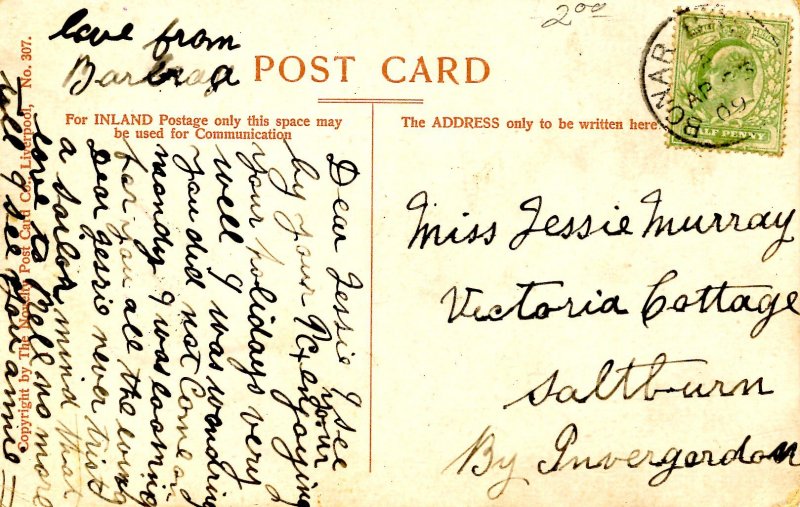 2 00
love from
Barbraa
POST CARD
For INLAND Postage only this space may
be used for Communication
The ADDRESS only to be written here.
BONAR
AP
09
HALF PENNY
Miss Jessie Murray
Victoria Cottage
Saltburn
By Invergordon
Dear Jessie I see
by your P.C. your enjoying
your holidays very
well I was wondring
you did not Come on
monday I was looming
for you all the eving
Dear Jessie never trist
a sailor mind that
love to Bell no more
till I see you annie
Copyright by The Novelty Post Card Co., Liverpool, No. 307.